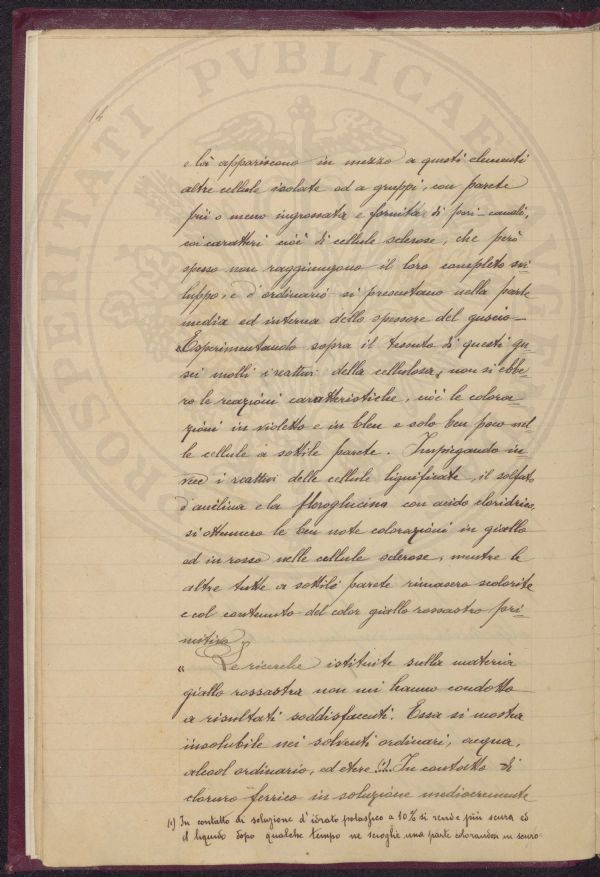 14
PROSPERITATI PVBLICAE AVGENDAE
e là appariscono in mezzo a questi elementi
altre cellule isolate od a gruppi, con parete
più o meno ingrossata e fornita di pori-canali,
coi caratteri cioè di cellule sclerose, che però
spesso non raggiungono il loro completo svi-
luppo, e d'ordinario si presentano nella parte
media ed interna dello spessore del guscio—
"Esperimentando sopra il tessuto di questi gu-
sci molli i reattivi della cellulosa, non si ebbe-
ro le reazioni caratteristiche, cioè le colora-
zioni in violetto e in bleu e solo ben poco nel-
le cellule a sottile parete. Impiegando in-
vece i reattivi delle cellule lignificate, il solfato
d'anilina e la floroglucina con acido cloridrico,
si ottennero le ben note colorazioni in giallo
ed in rosso nelle cellule sclerose, mentre le
altre tutte a sottile parete rimasero scolorite
e col contenuto del color giallo rossastro pri-
mitivo.
" Le ricerche istituite sulla materia
giallo rossastra non mi hanno condotto
a risultati soddisfacenti. Essa si mostra
insolubile nei solventi ordinari, acqua,
alcool ordinario, ed etere (1). In contatto di
cloruro ferrico in soluzione mediocremente
(1) In contatto di soluzione d'idrato potassico a 10% si rende più scura ed
il liquido dopo qualche tempo ne scioglie una parte colorandosi in scuro.